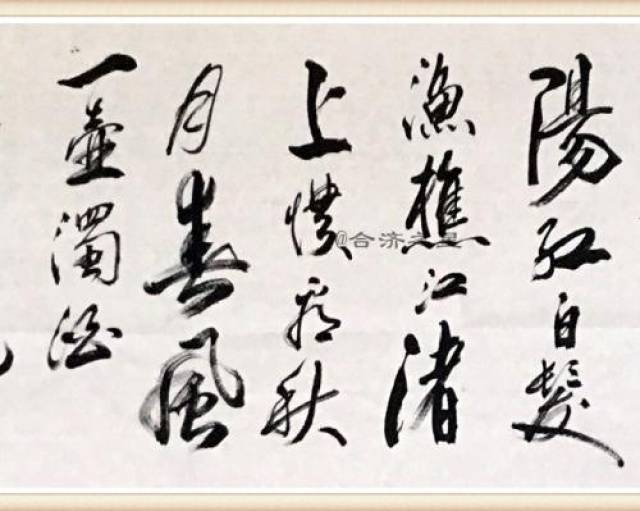 陽紅白髮
漁樵江渚
上慣看秋
月春風
一壺濁酒
@合济